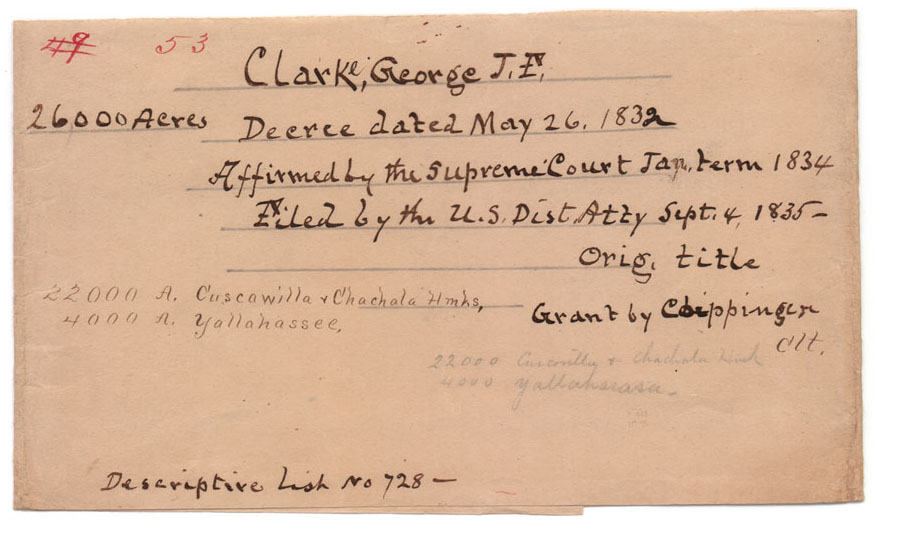 49 53
Clarke, George J. F.
26,000 Acres Decree dated May 26, 1832
Affirmed by the Supreme Court Jan, term 1834
Filed by the U.S. Dist. Atty Sept. 4, 1835-
Orig, title
22000 A. Cuscawilla & Chachala Hmks,
Grant by Coippinger
4000 A. Yallahassee,
Clt.
22000 & Chachala Hmk
4000
Descriptive List No 728 -